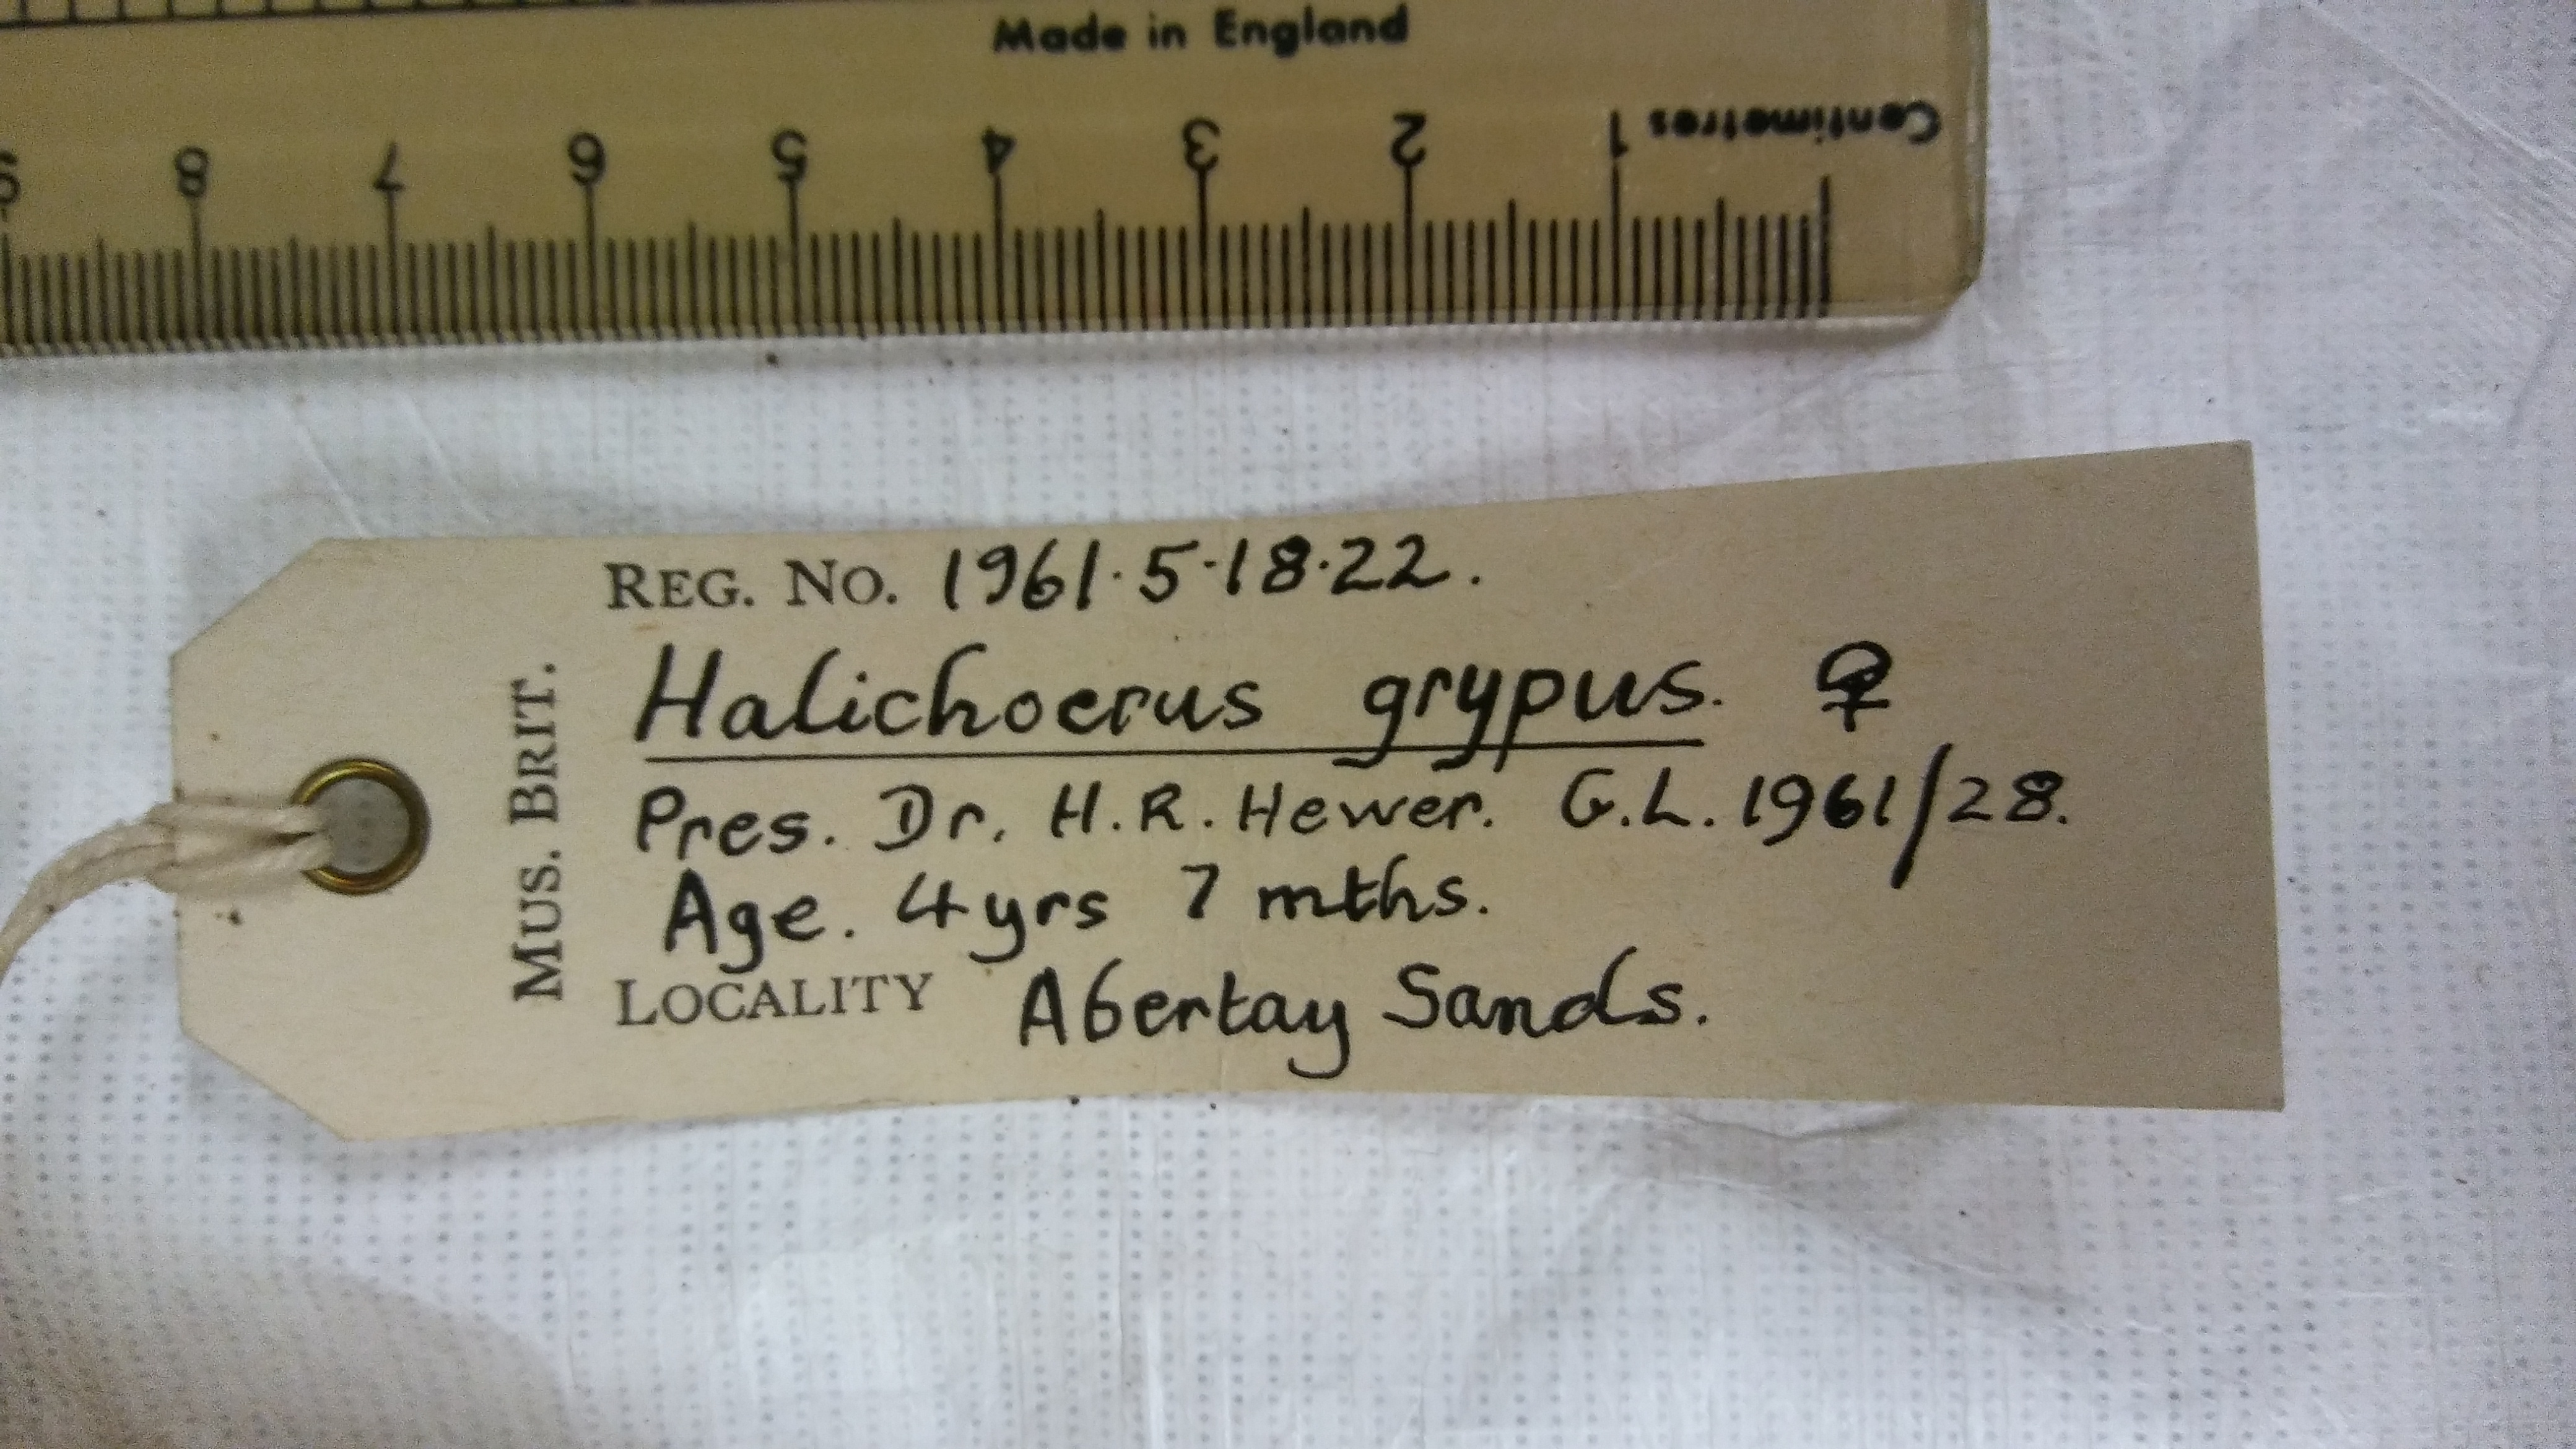 MUS. BRIT.
REG. NO. 1961.5.18.22.
Halichoerus grypus. ♀
Pres. Dr. H.R. Hewer. G.L. 1961/28.
Age. 4yrs 7 mths.
LOCALITY Abertay Sands.
9 8 7 6 5 4 3 2 1
Centimetres
Made in England